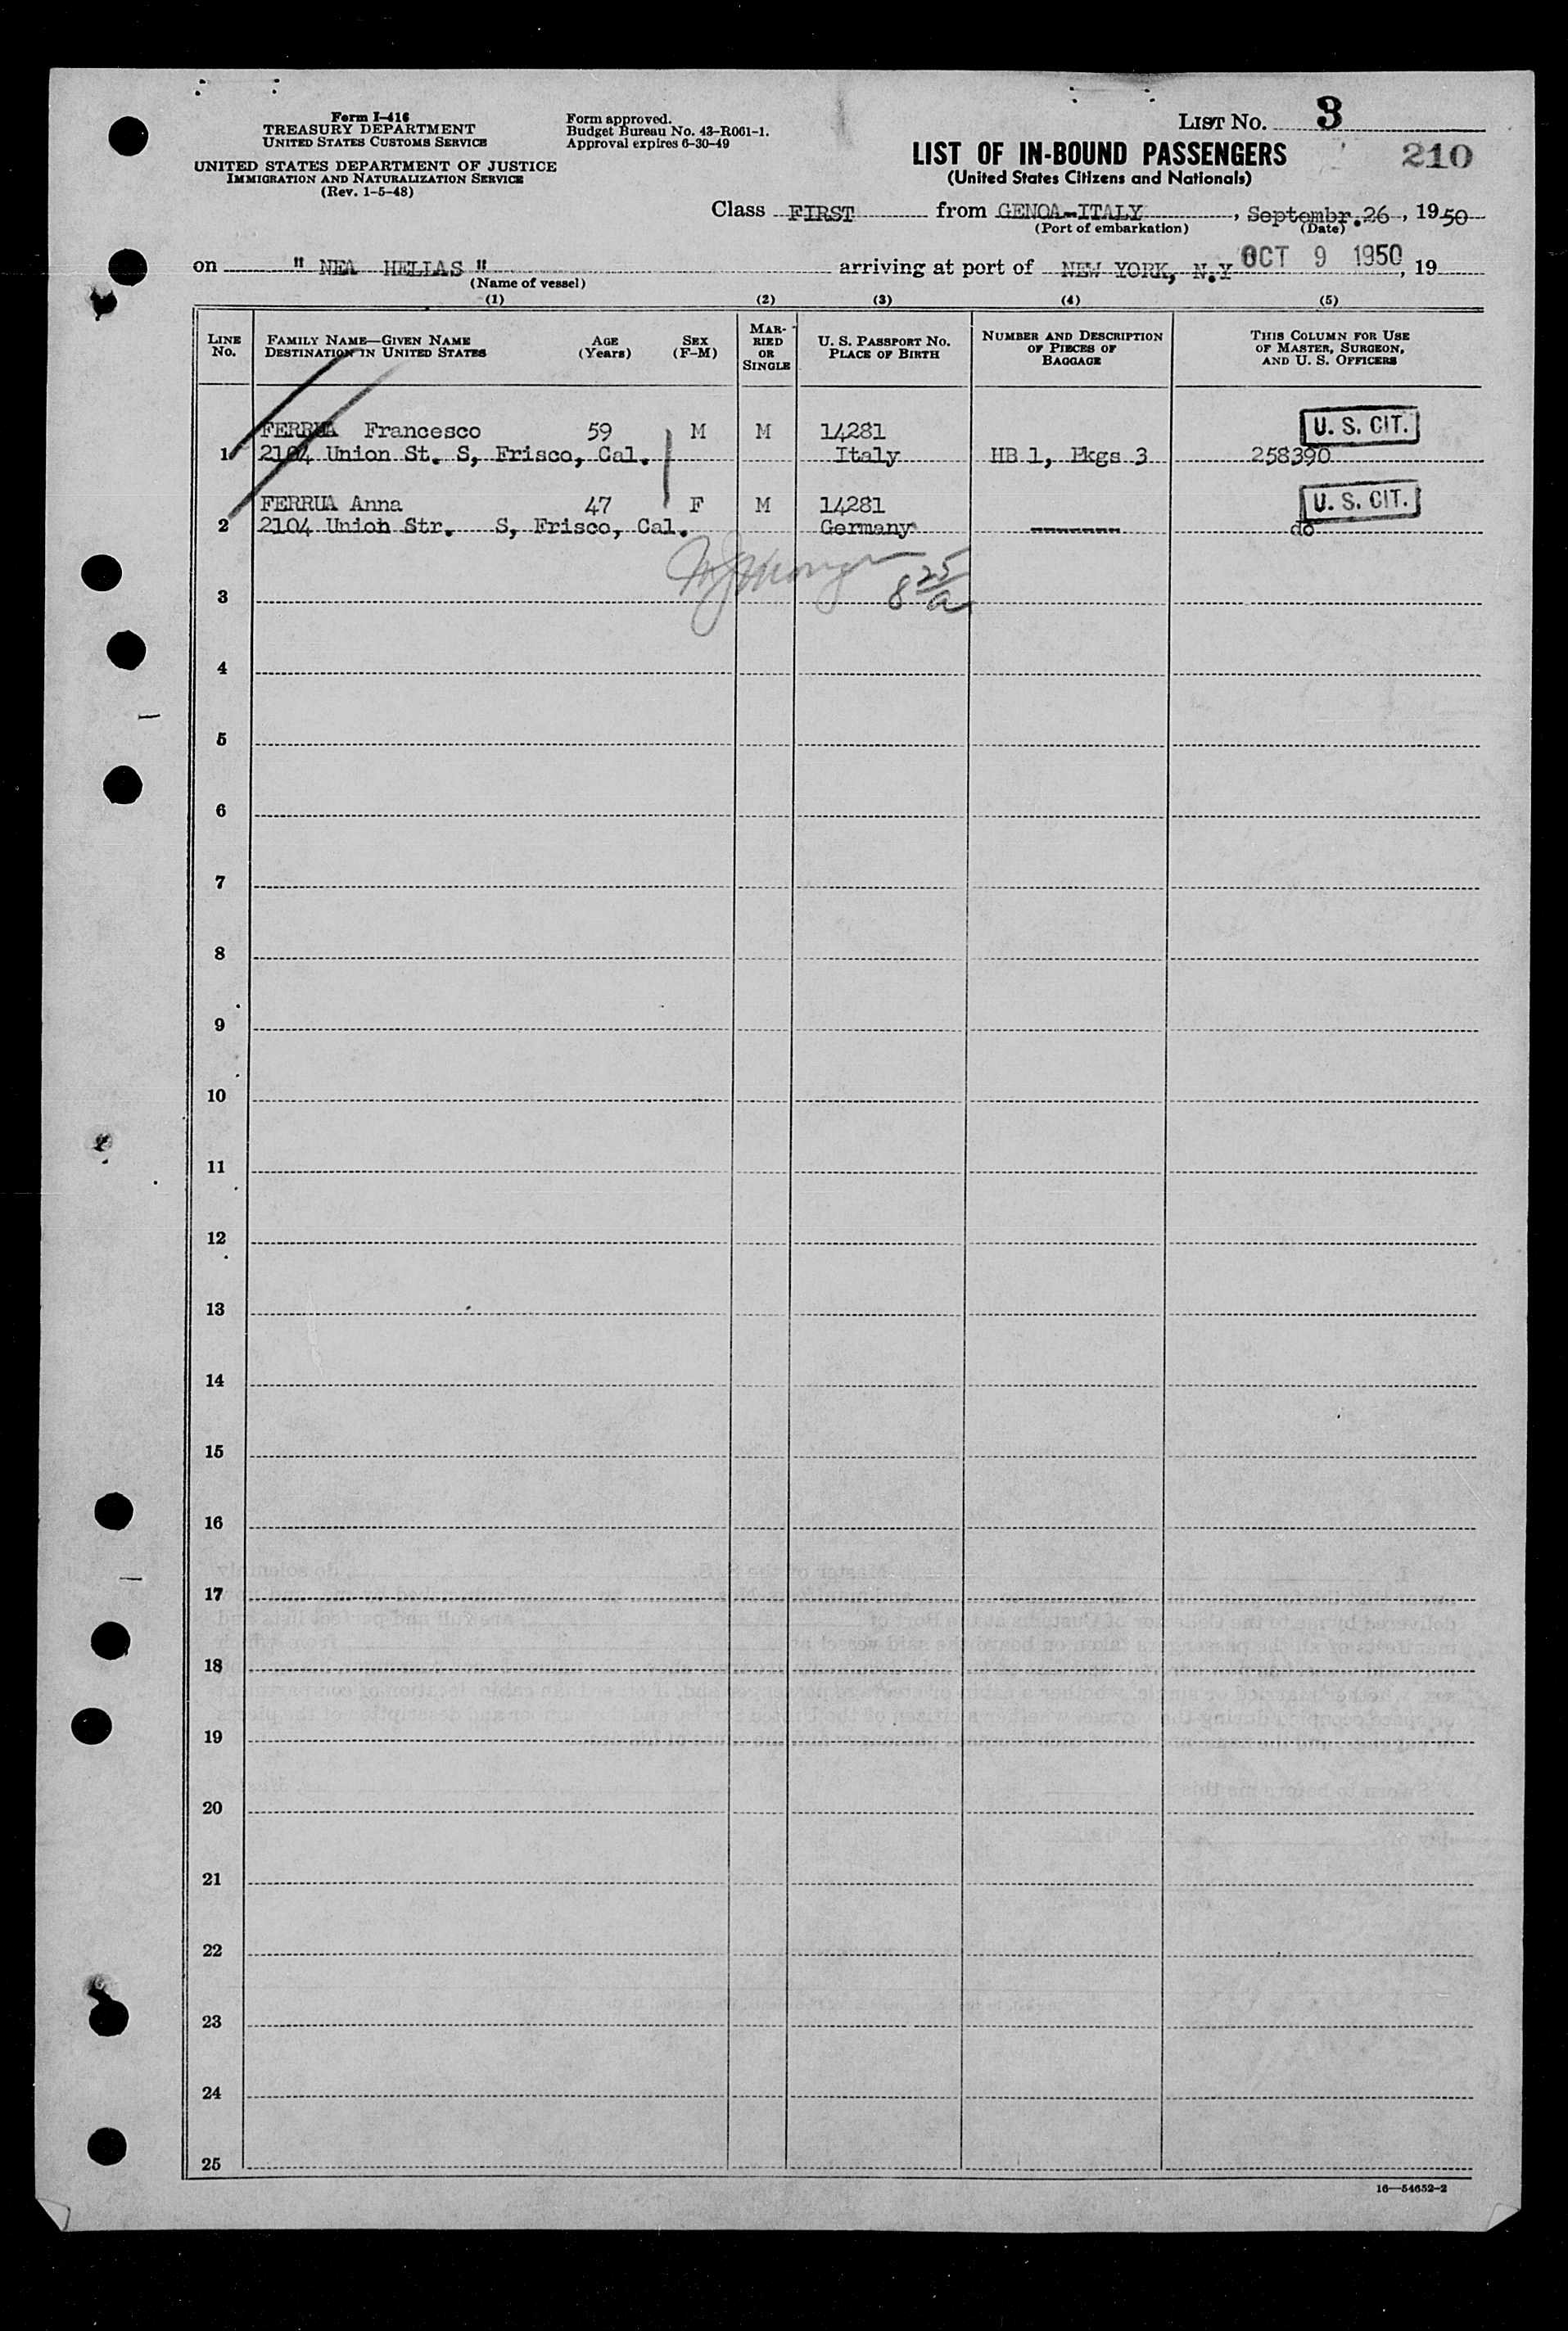 Form I-416
TREASURY DEPARTMENT
UNITED STATES CUSTOMS SERVICE
UNITED STATES DEPARTMENT OF JUSTICE
IMMIGRATION AND NATURALIZATION SERVICE
(Rev. 1-5-48)
Form approved.
Budget Bureau No. 43-R061-1.
Approval expires 6-30-49
LIST No. 3
LIST OF IN-BOUND PASSENGERS 210
(United States Citizens and Nationals)
Class FIRST from GENOA-ITALY, Septembr.26, 1950
(Port of embarkation) (Date)
on " NEA HELLAS " arriving at port of NEW YORK, N.Y OCT 9 1950, 19
(Name of vessel)
(1) (2) (3) (4) (5)
LINE No. FAMILY NAME—GIVEN NAME DESTINATION IN UNITED STATES AGE (Years) SEX (F-M) MARRIED OR SINGLE U. S. PASSPORT NO. PLACE OF BIRTH NUMBER AND DESCRIPTION OF PIECES OF BAGGAGE THIS COLUMN FOR USE OF MASTER, SURGEON, AND U. S. OFFICERS
FERRUA Francesco 59 M M 14281 U. S. CIT.
1 2104 Union St. S, Frisco, Cal. Italy HB 1, Pkgs 3 258390
FERRUA Anna 47 F M 14281 U. S. CIT.
2 2104 Union Str. S, Frisco, Cal. Germany ------- do
8 25/a
3
4
5
6
7
8
9
10
11
12
13
14
15
16
17
18
19
20
21
22
23
24
25
16—54652-2